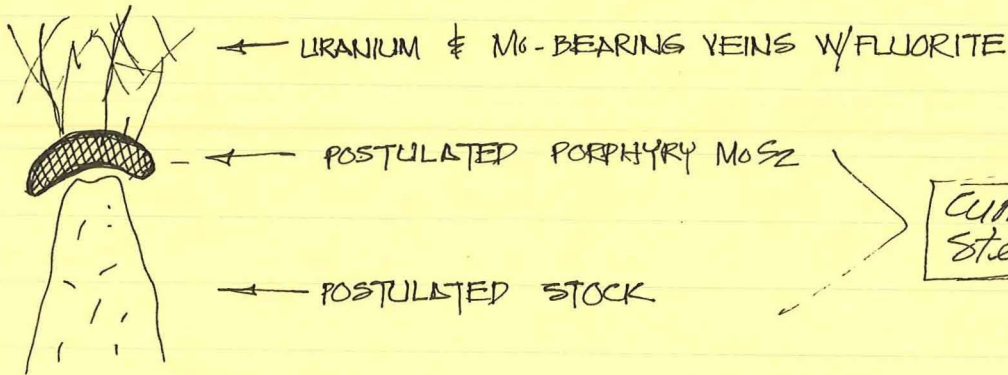 URANIUM & Mo-BEARING VEINS W/FLUORITE
POSTULATED PORPHYRY MoS2
POSTULATED STOCK